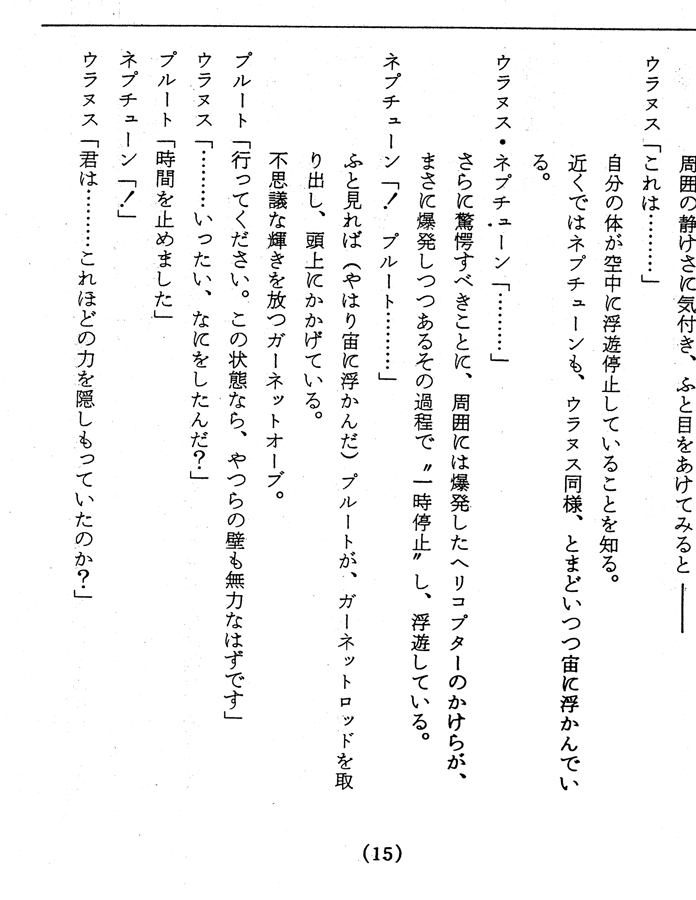 周囲の静けさに気付き、ふと目をあけてみると――
ウラヌス「これは………」
自分の体が空中に浮遊停止していることを知る。
近くではネプチューンも、ウラヌス同様、とまどいつつ宙に浮かんでい
る。
ウラヌス・ネプチューン「………」
さらに驚愕すべきことに、周囲には爆発したヘリコプターのかけらが、
まさに爆発しつつあるその過程で〝一時停止〟し、浮遊している。
ネプチューン「！　プルート………」
ふと見れば（やはり宙に浮かんだ）プルートが、ガーネットロッドを取
り出し、頭上にかかげている。
不思議な輝きを放つガーネットオーブ。
プルート「行ってください。この状態なら、やつらの壁も無力なはずです」
ウラヌス「………いったい、なにをしたんだ？」
プルート「時間を止めました」
ネプチューン「！」
ウラヌス「君は………これほどの力を隠しもっていたのか？」
(15)